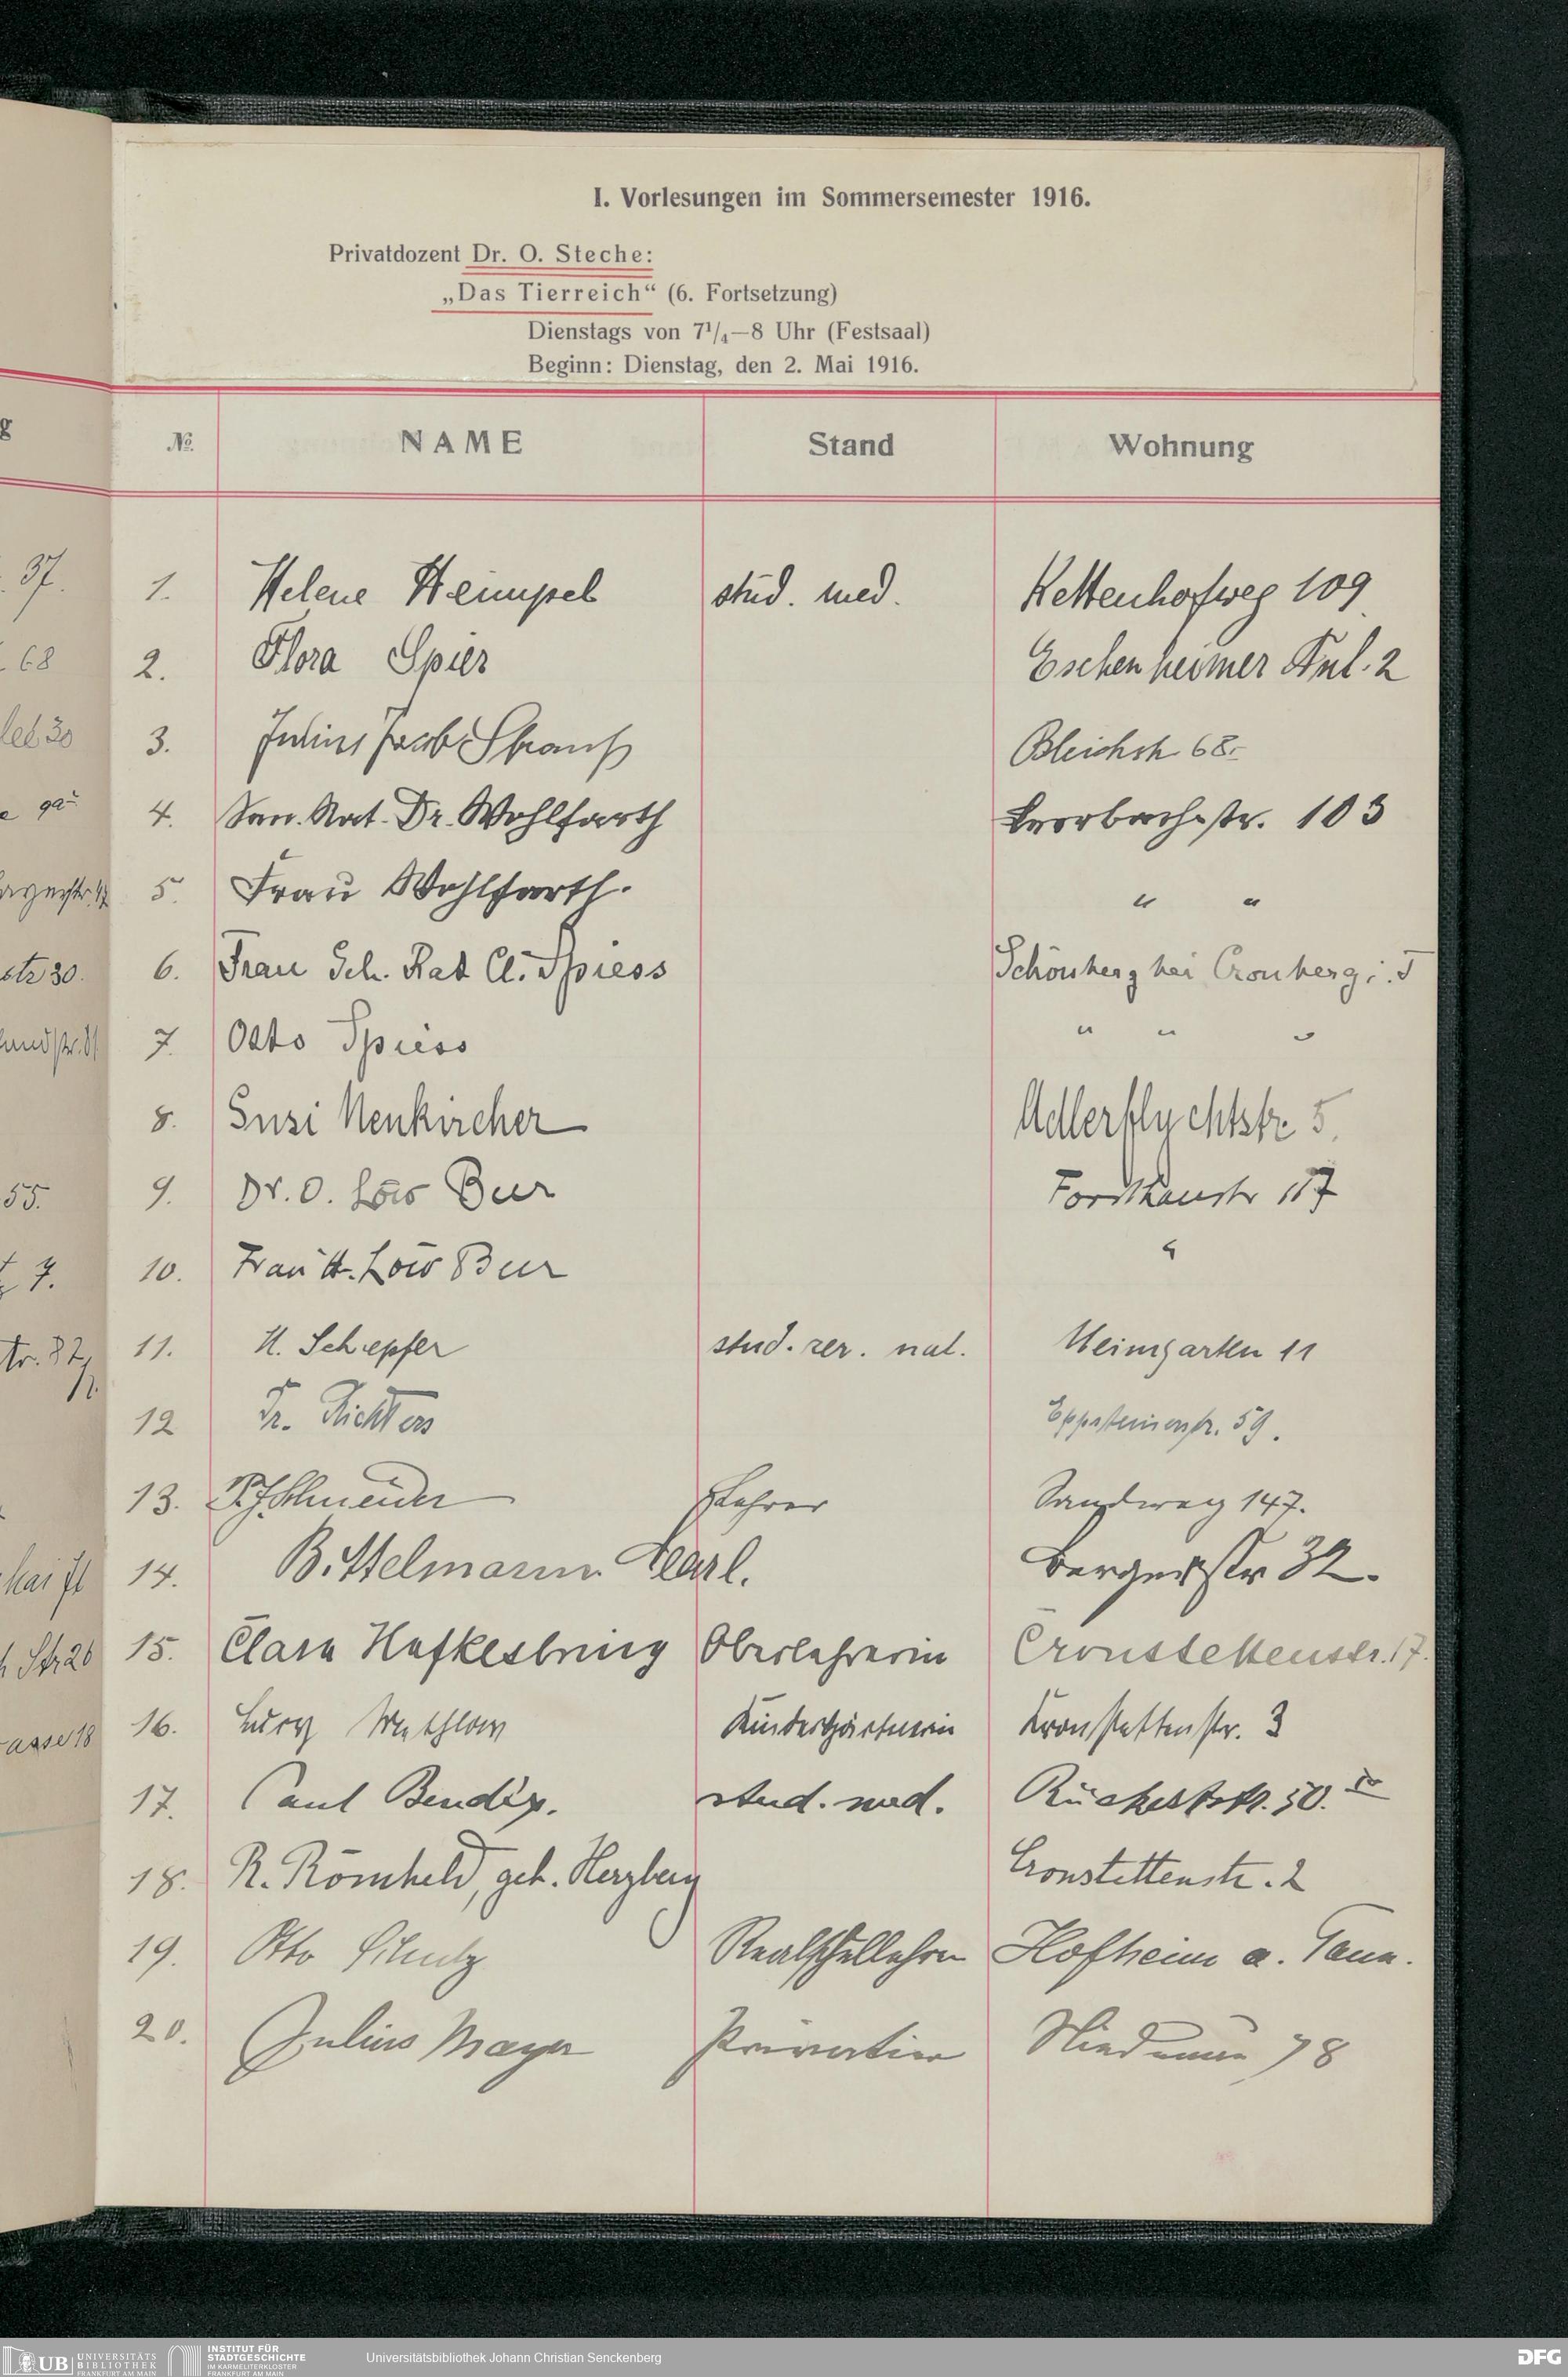 I. Vorlesungen im Sommersemester 1916.
Privatdozent Dr. O. Steche:
„Das Tierreich“ (6. Fortsetzung)
Dienstags von 7¹/₄—8 Uhr (Festsaal)
Beginn: Dienstag, den 2. Mai 1916.
g
№ NAME Stand Wohnung
37. 1. Helene Heimpel stud. med. Kettenhofweg 109
68 2. Flora Spier Eschenheimer Anl. 2
30 3. Julius Jacob Strauß Bleichstr 68
4. San. Rat. Dr. Wohlfarth Leerbachstr. 103
5. Frau Wohlfarth. " "
str 30. 6. Frau Geh. Rat Cl. Spiess Schönberg bei Cronberg i. T
7. Otto Spiess " " "
8. Susi Neukircher Adlerflychtstr 5.
55. 9. Dr. O. Löw Beer Forsthausstr 117
7. 10. Frau H. Löw Beer "
tr. 87 11. H. Schepfer stud. rer. nat. Heimgarten 11
12 Fr. Richters Eppsteinerstr. 59.
13. Schneider Lehrer Sandweg 147.
14. Bittelmann Karl. Bergerstr 32.
Str 26 15. Clara Hafkesbring Oberlehrerin Cronstettenstr. 17.
asse 18 16. Lucy Kindergärtnerin Kronstettenstr. 3
17. Paul Bendix. stud. med. Rückertstr. 50.
18. R. Römheld, geb. Herzberg Cronstettenstr. 2
19. Otto Realschullehrer Hofheim a. Taun.
20. Julius Mayer Privatier 78
UB UNIVERSITÄTS
BIBLIOTHEK
FRANKFURT AM MAIN
INSTITUT FÜR
STADTGESCHICHTE
IM KARMELITERKLOSTER
FRANKFURT AM MAIN
Universitätsbibliothek Johann Christian Senckenberg
DFG